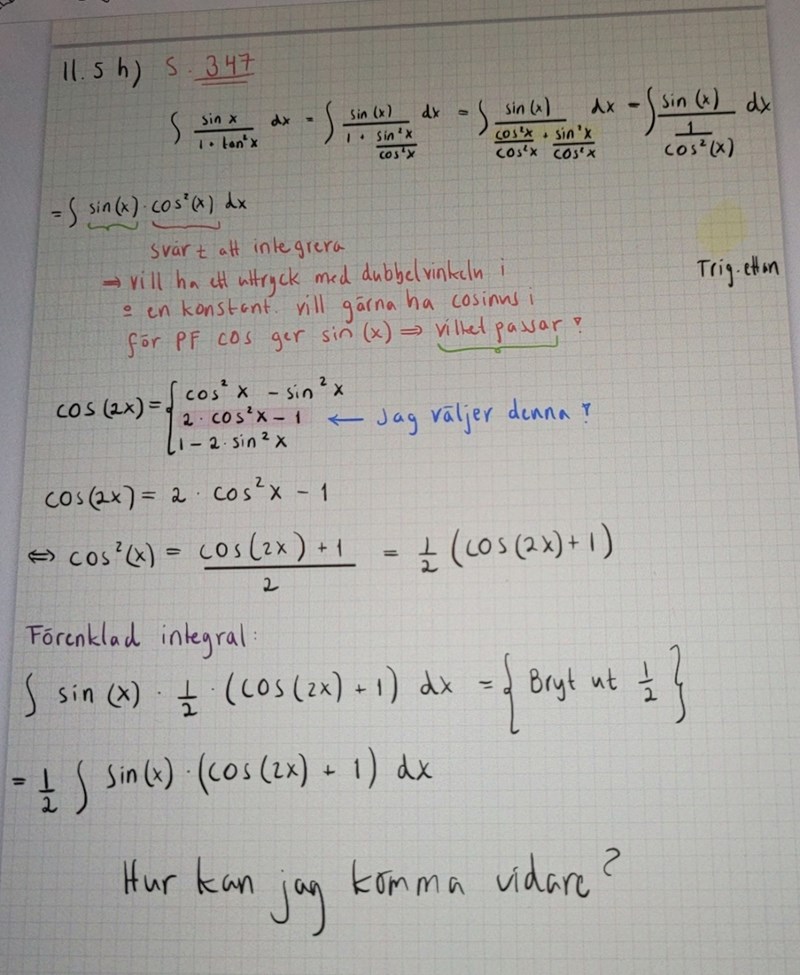 11.5 h) S. 347
∫ sin x / (1 + tan²x) dx = ∫ sin(x) / (1 + sin²x/cos²x) dx = ∫ sin(x) / (cos²x/cos²x + sin²x/cos²x) dx = ∫ sin(x) / (1/cos²(x)) dx
= ∫ sin(x) · cos²(x) dx
svårt att integrera
Trig. ettan
⇒ vill ha ett uttryck med dubbelvinkeln i
o en konstant. vill gärna ha cosinus i
för PF cos ger sin(x) ⇒ vilket passar?
cos(2x) = { cos²x - sin²x
2 · cos²x - 1 ← Jag väljer denna?
1 - 2 · sin²x
cos(2x) = 2 · cos²x - 1
⇔ cos²(x) = (cos(2x) + 1) / 2 = 1/2 (cos(2x) + 1)
Förenklad integral:
∫ sin(x) · 1/2 · (cos(2x) + 1) dx = { Bryt ut 1/2 }
= 1/2 ∫ sin(x) · (cos(2x) + 1) dx
Hur kan jag komma vidare?